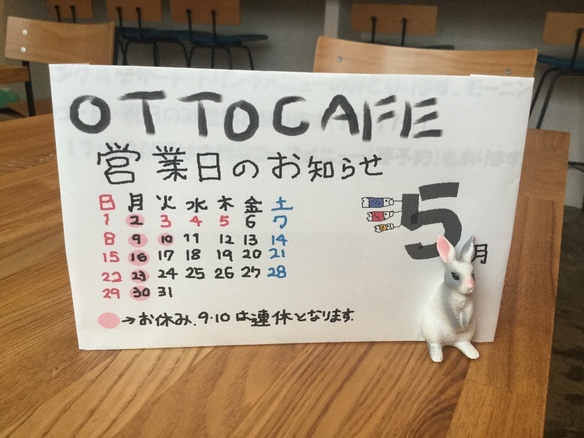 OTTO CAFE
営業日のお知らせ
5月
日 月 火 水 木 金 土
1 2 3 4 5 6 7
8 9 10 11 12 13 14
15 16 17 18 19 20 21
22 23 24 25 26 27 28
29 30 31
→お休み.9.10は連休となります.